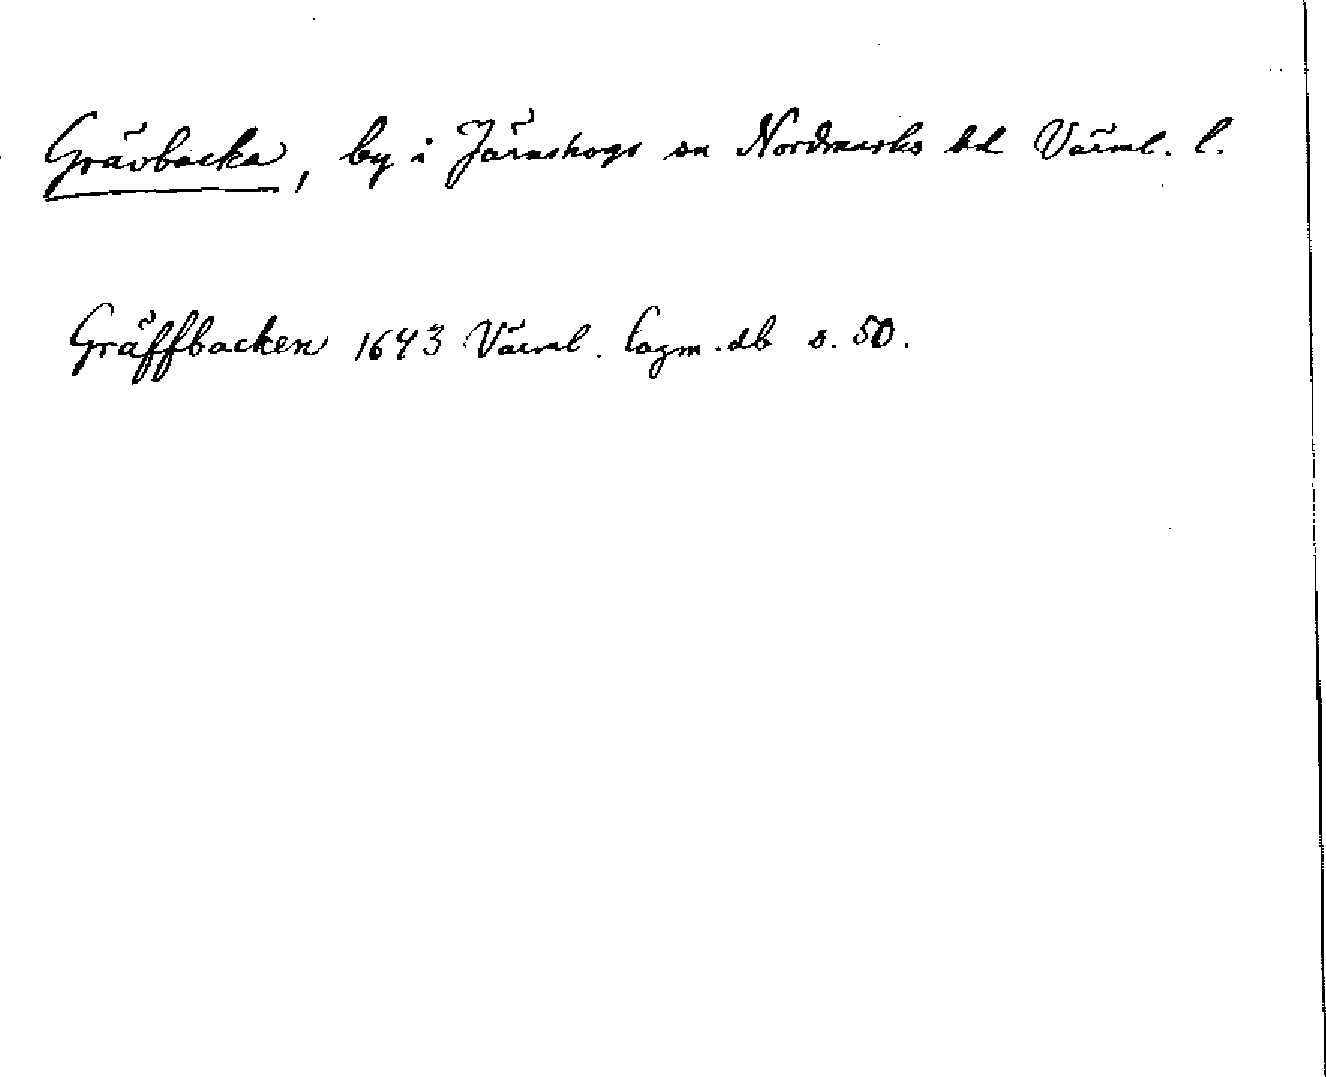 Grävbacka, by i Järnskogs sn Nordmarks hd Värml. l.
Gräffbacken 1643 Värml. lagm. db s. 50.